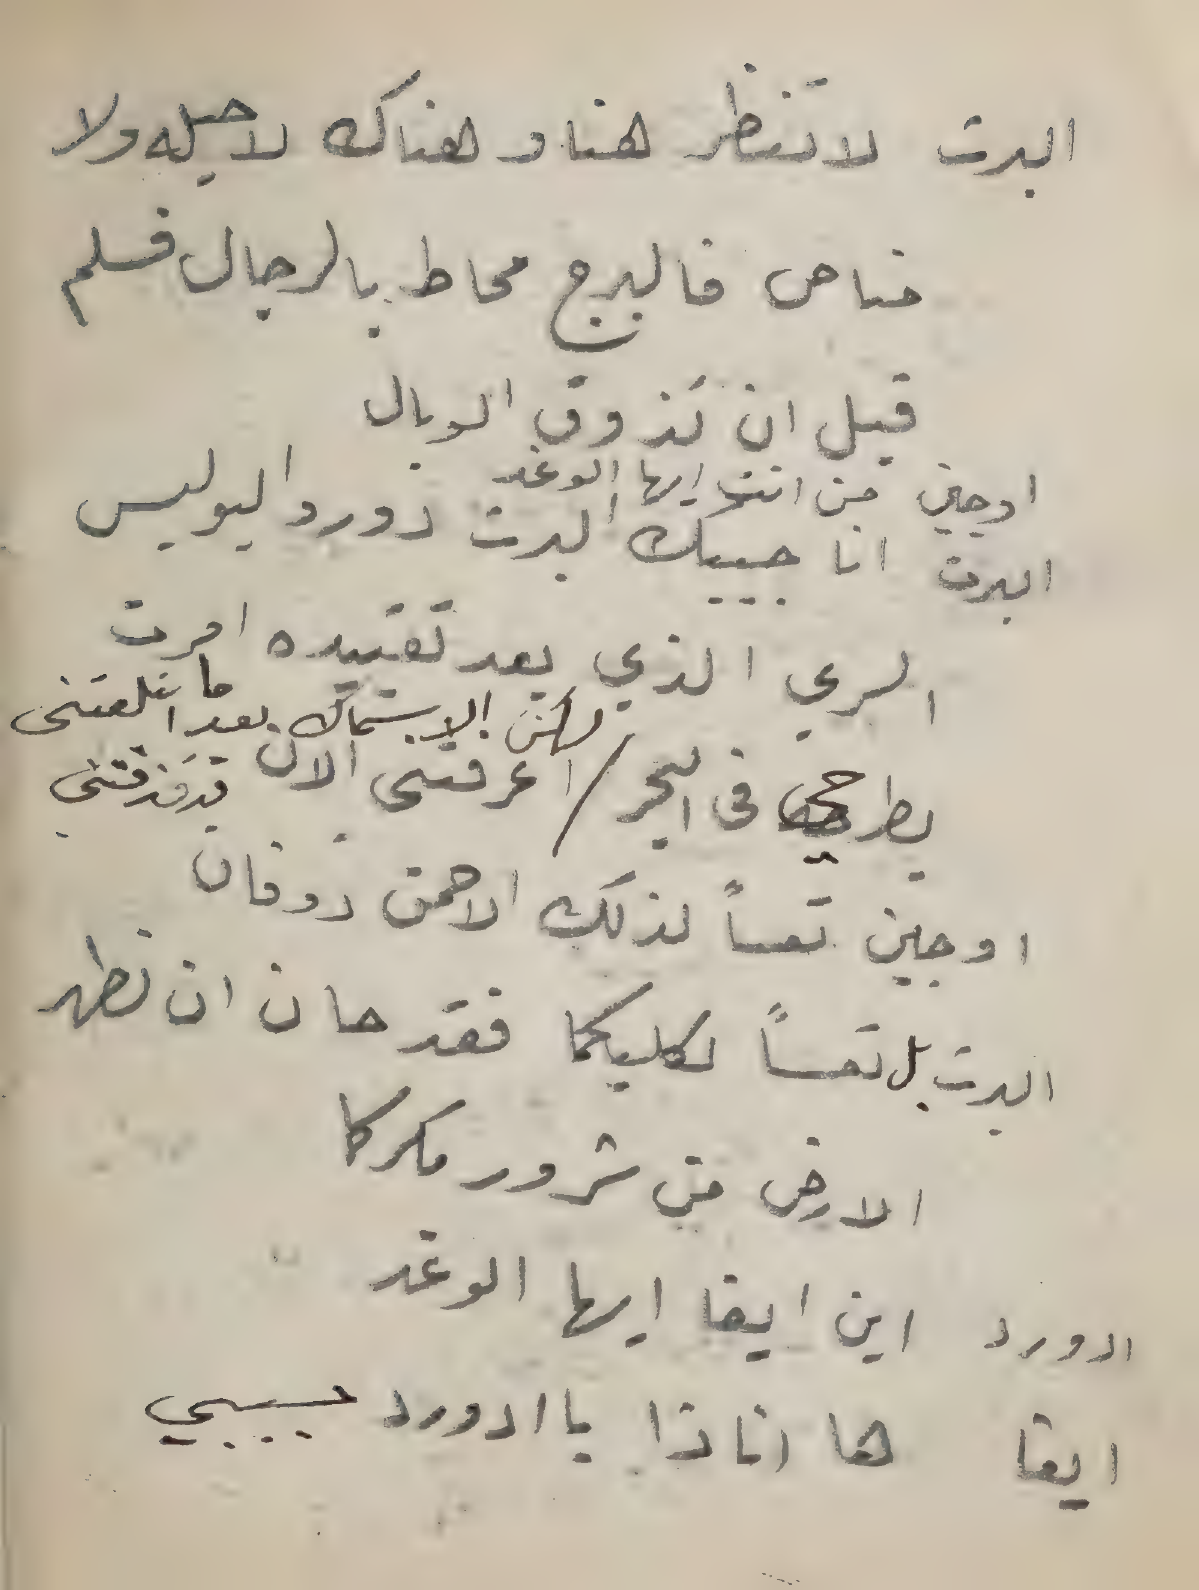 البرت لا تنظر هنا وهناك لا حيله ولا
مناص فالبرج محاط بالرجال فسلم
قبل ان تذوق الوبال
اوجين من انت ايها الوغد
البرت انا حبيبك البرت دورد البوليس
السري الذي بعد تقييده امرت
لكن الاسماك بعد ما ابتلعتنى
بطرحي فى البحر / اعرفتنى الان قد قذفتنى
اوجين تعساً لذلك الاحمق دوفان
البرت بل تعساً لكليكما فقد حان ان تطهر
الارض من شرور مكركما
ادورد اين ايفا ايها الوغد
ايفا ها انا ذا يا ادورد حبيبي